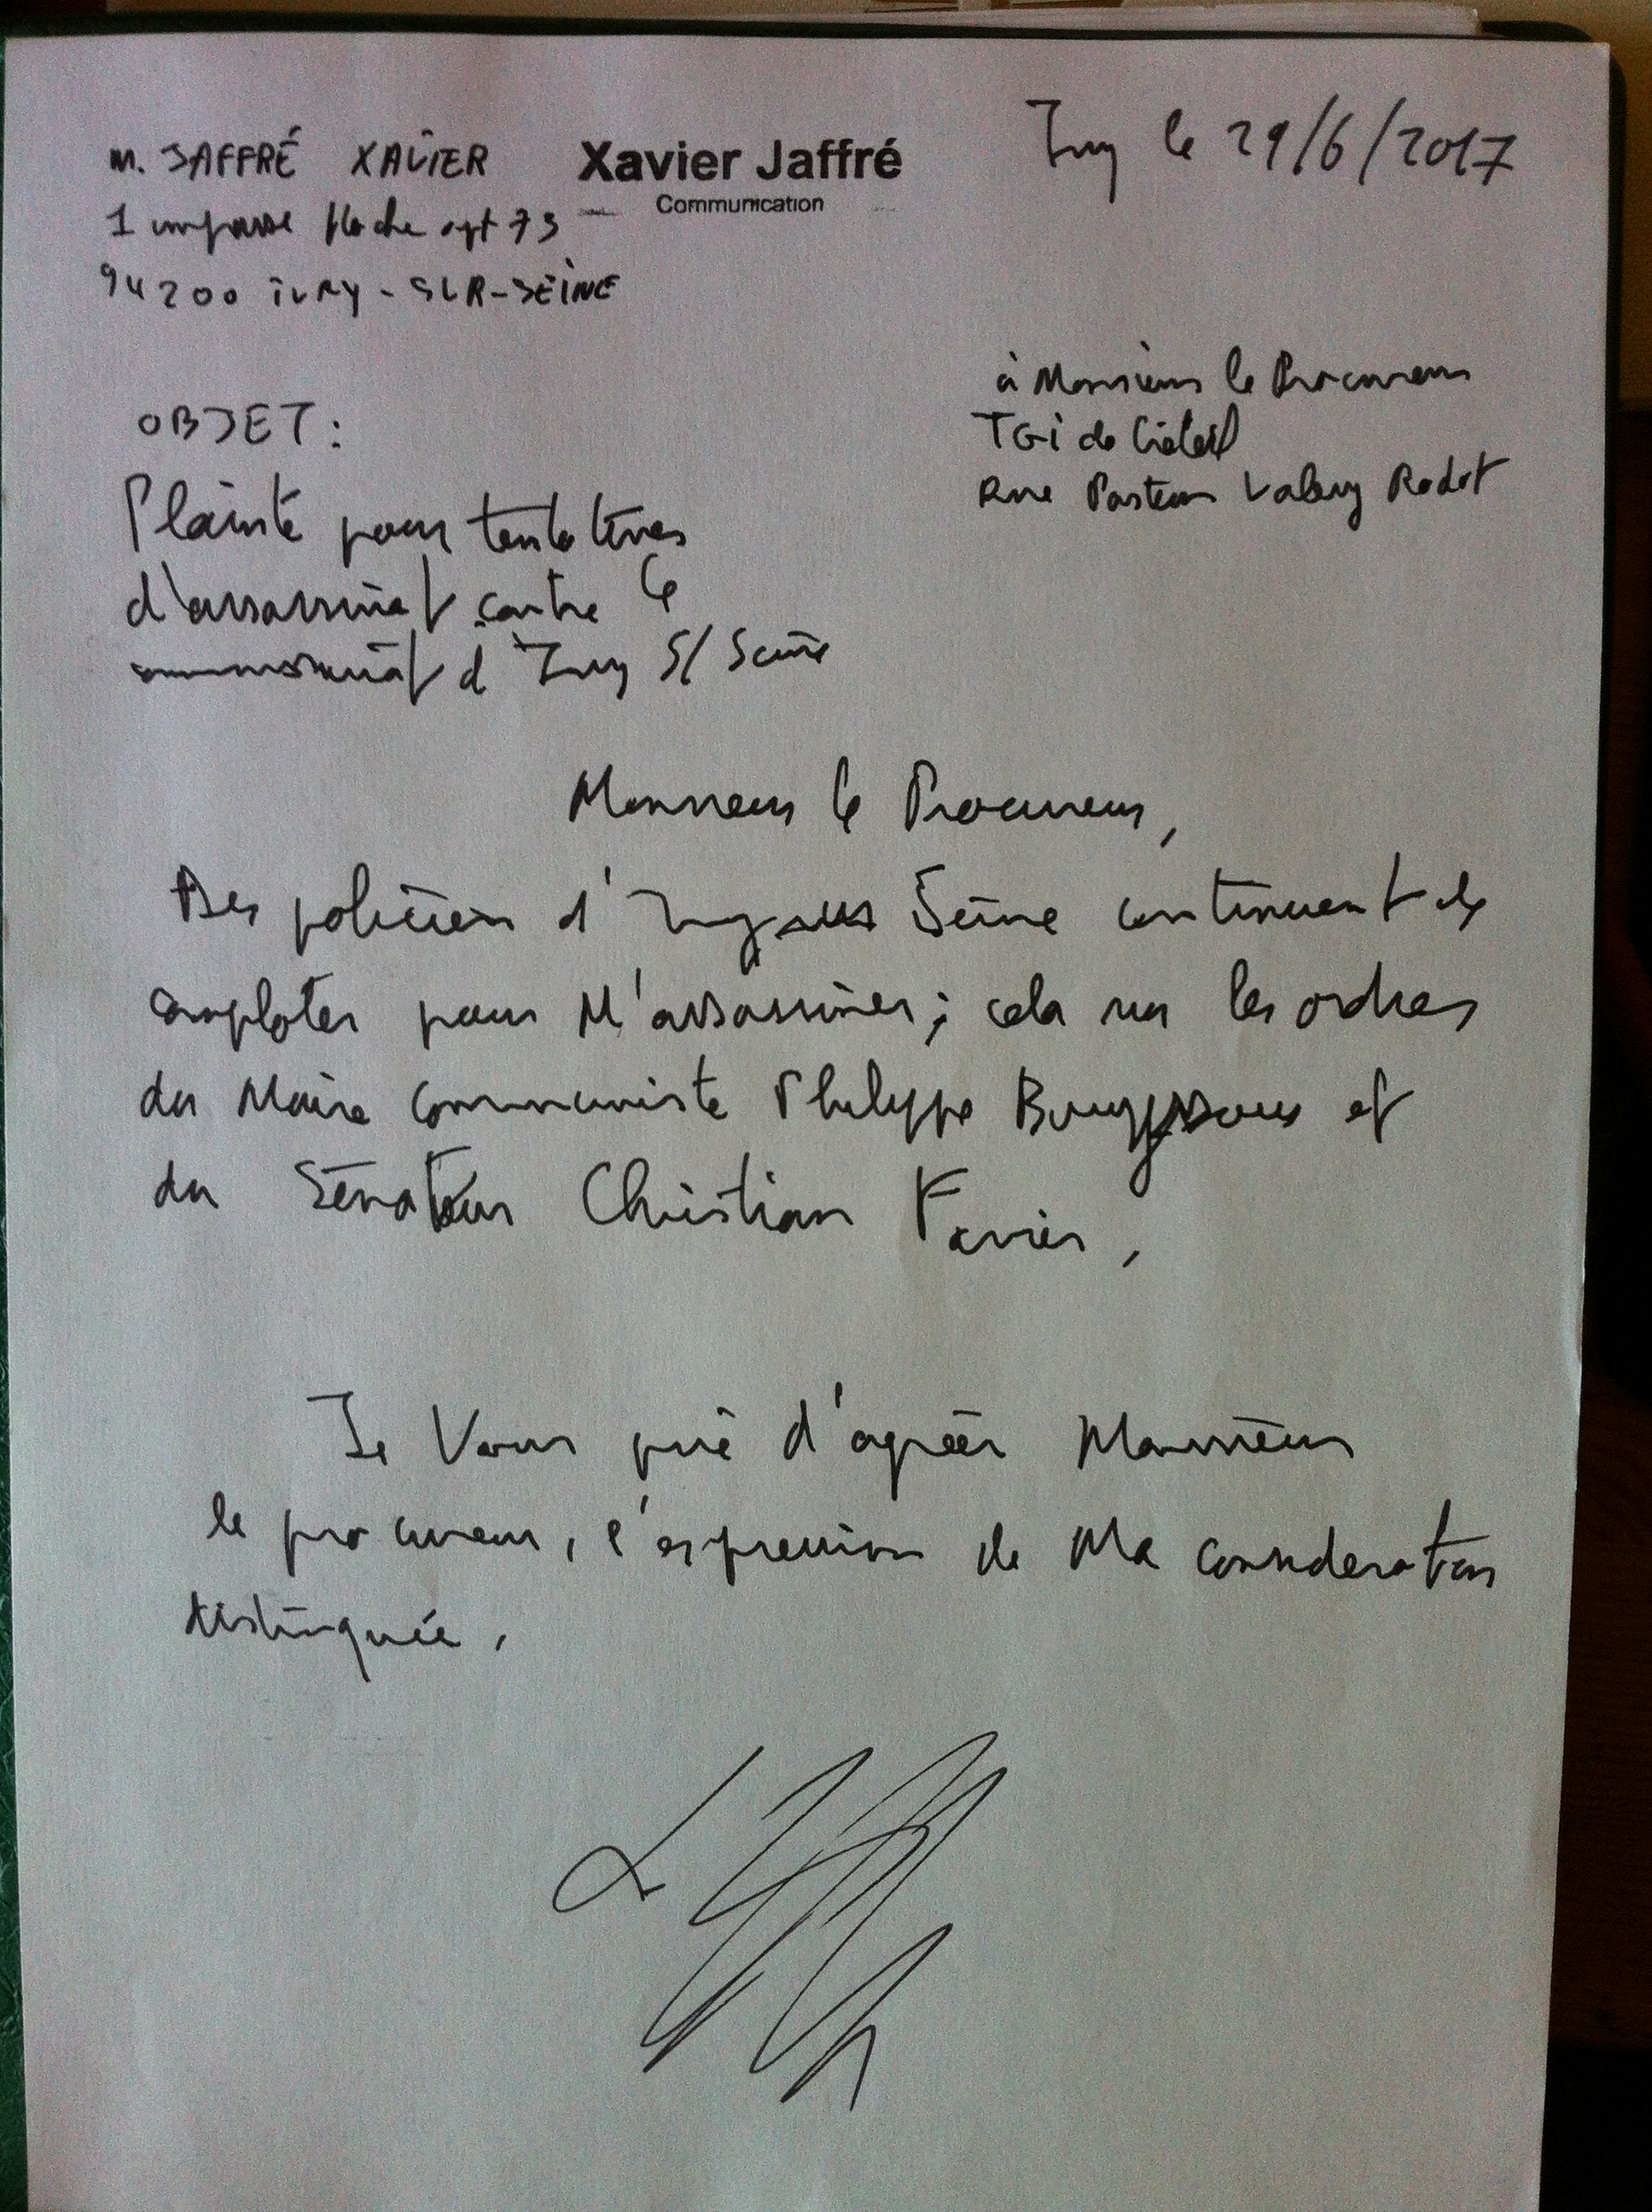 Ivry le 29/6/2017
M. JAFFRÉ XAVIER
Xavier Jaffré
Communication
1 impasse Hoche apt 73
94200 IVRY-SUR-SEINE
à Monsieur le Procureur
TGI de Créteil
Rue Pasteur Valery Radot
OBJET:
Plainte pour tentatives
d'assassinat contre le
commissariat d'Ivry S/ Seine
Monsieur le Procureur,
Des policiers d'Ivry sur Seine continuent de
comploter pour M'assassiner; cela sur les ordres
du Maire communiste Philippe Bouyssou et
du Sénateur Christian Favier,
Je Vous prie d'agréer Monsieur
le procureur, l'expression de Ma considération
distinguée,